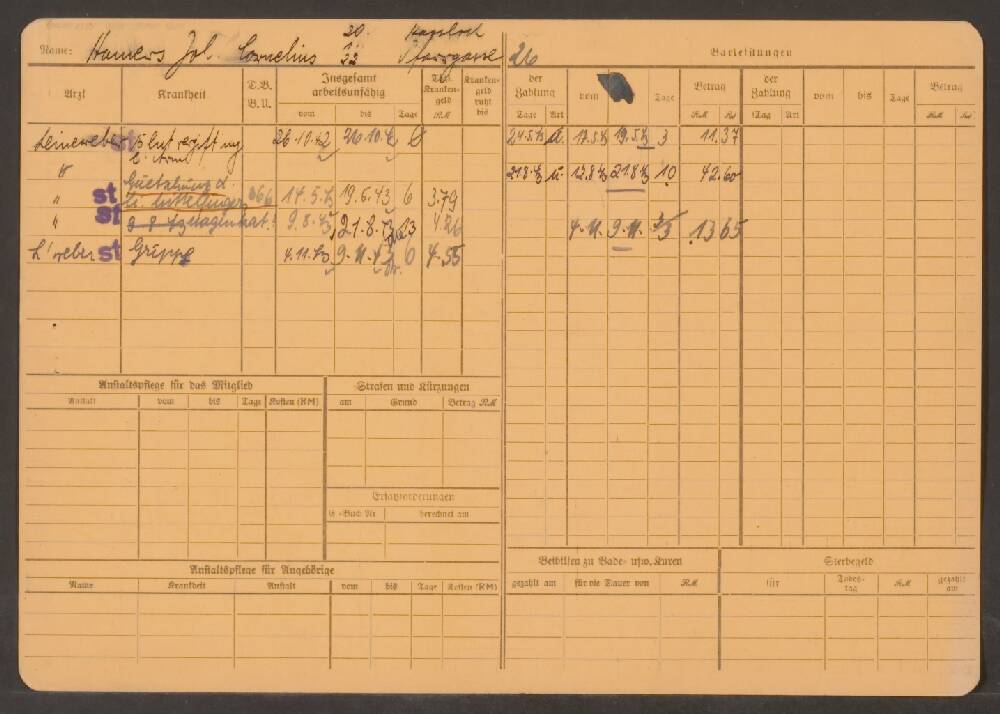 Name: Hamers Joh. Cornelius 20. Pfarrgasse 26
Barleistungen
Arzt Krankheit D.B. B.U. Insgesamt arbeitsunfähig vom bis Tage Tgl. Kranken-geld RM Kranken-geld ruht bis
der Zahlung Tage Art vom bis Tage Betrag RM Rpf der Zahlung Tag Art vom bis Tage Betrag RM Rpf
Leineweber st Blutvergiftung 26.10.42 26.10.42
l. Arm
24.5.43 ü. 17.5.43 19.5.43 3 11.37
" st Quetschung d.
li. Mittelfinger 666 14.5.43 19.5.43 6 3.79
21.8.43 ü. 12.8.43 21.8.43 10 42.60
" st 9.8.43 Magenkat. 9.8.43 21.8.43 13 4.26
L'weber st Grippe 4.11.43 9.11.43 6 4.55
4.11. 9.11. 3/3 13 65
Anstaltspflege für das Mitglied
Anstalt vom bis Tage Kosten (RM)
Strafen und Kürzungen
am Grund Betrag RM
Ersatzforderungen
E.-Buch Nr berechnet am
Anstaltspflege für Angehörige
Name Krankheit Anstalt vom bis Tage Kosten (RM)
Beihilfen zu Bade- usw. Kuren
gezahlt am für die Dauer von RM
Sterbegeld
für Todes-tag RM gezahlt am